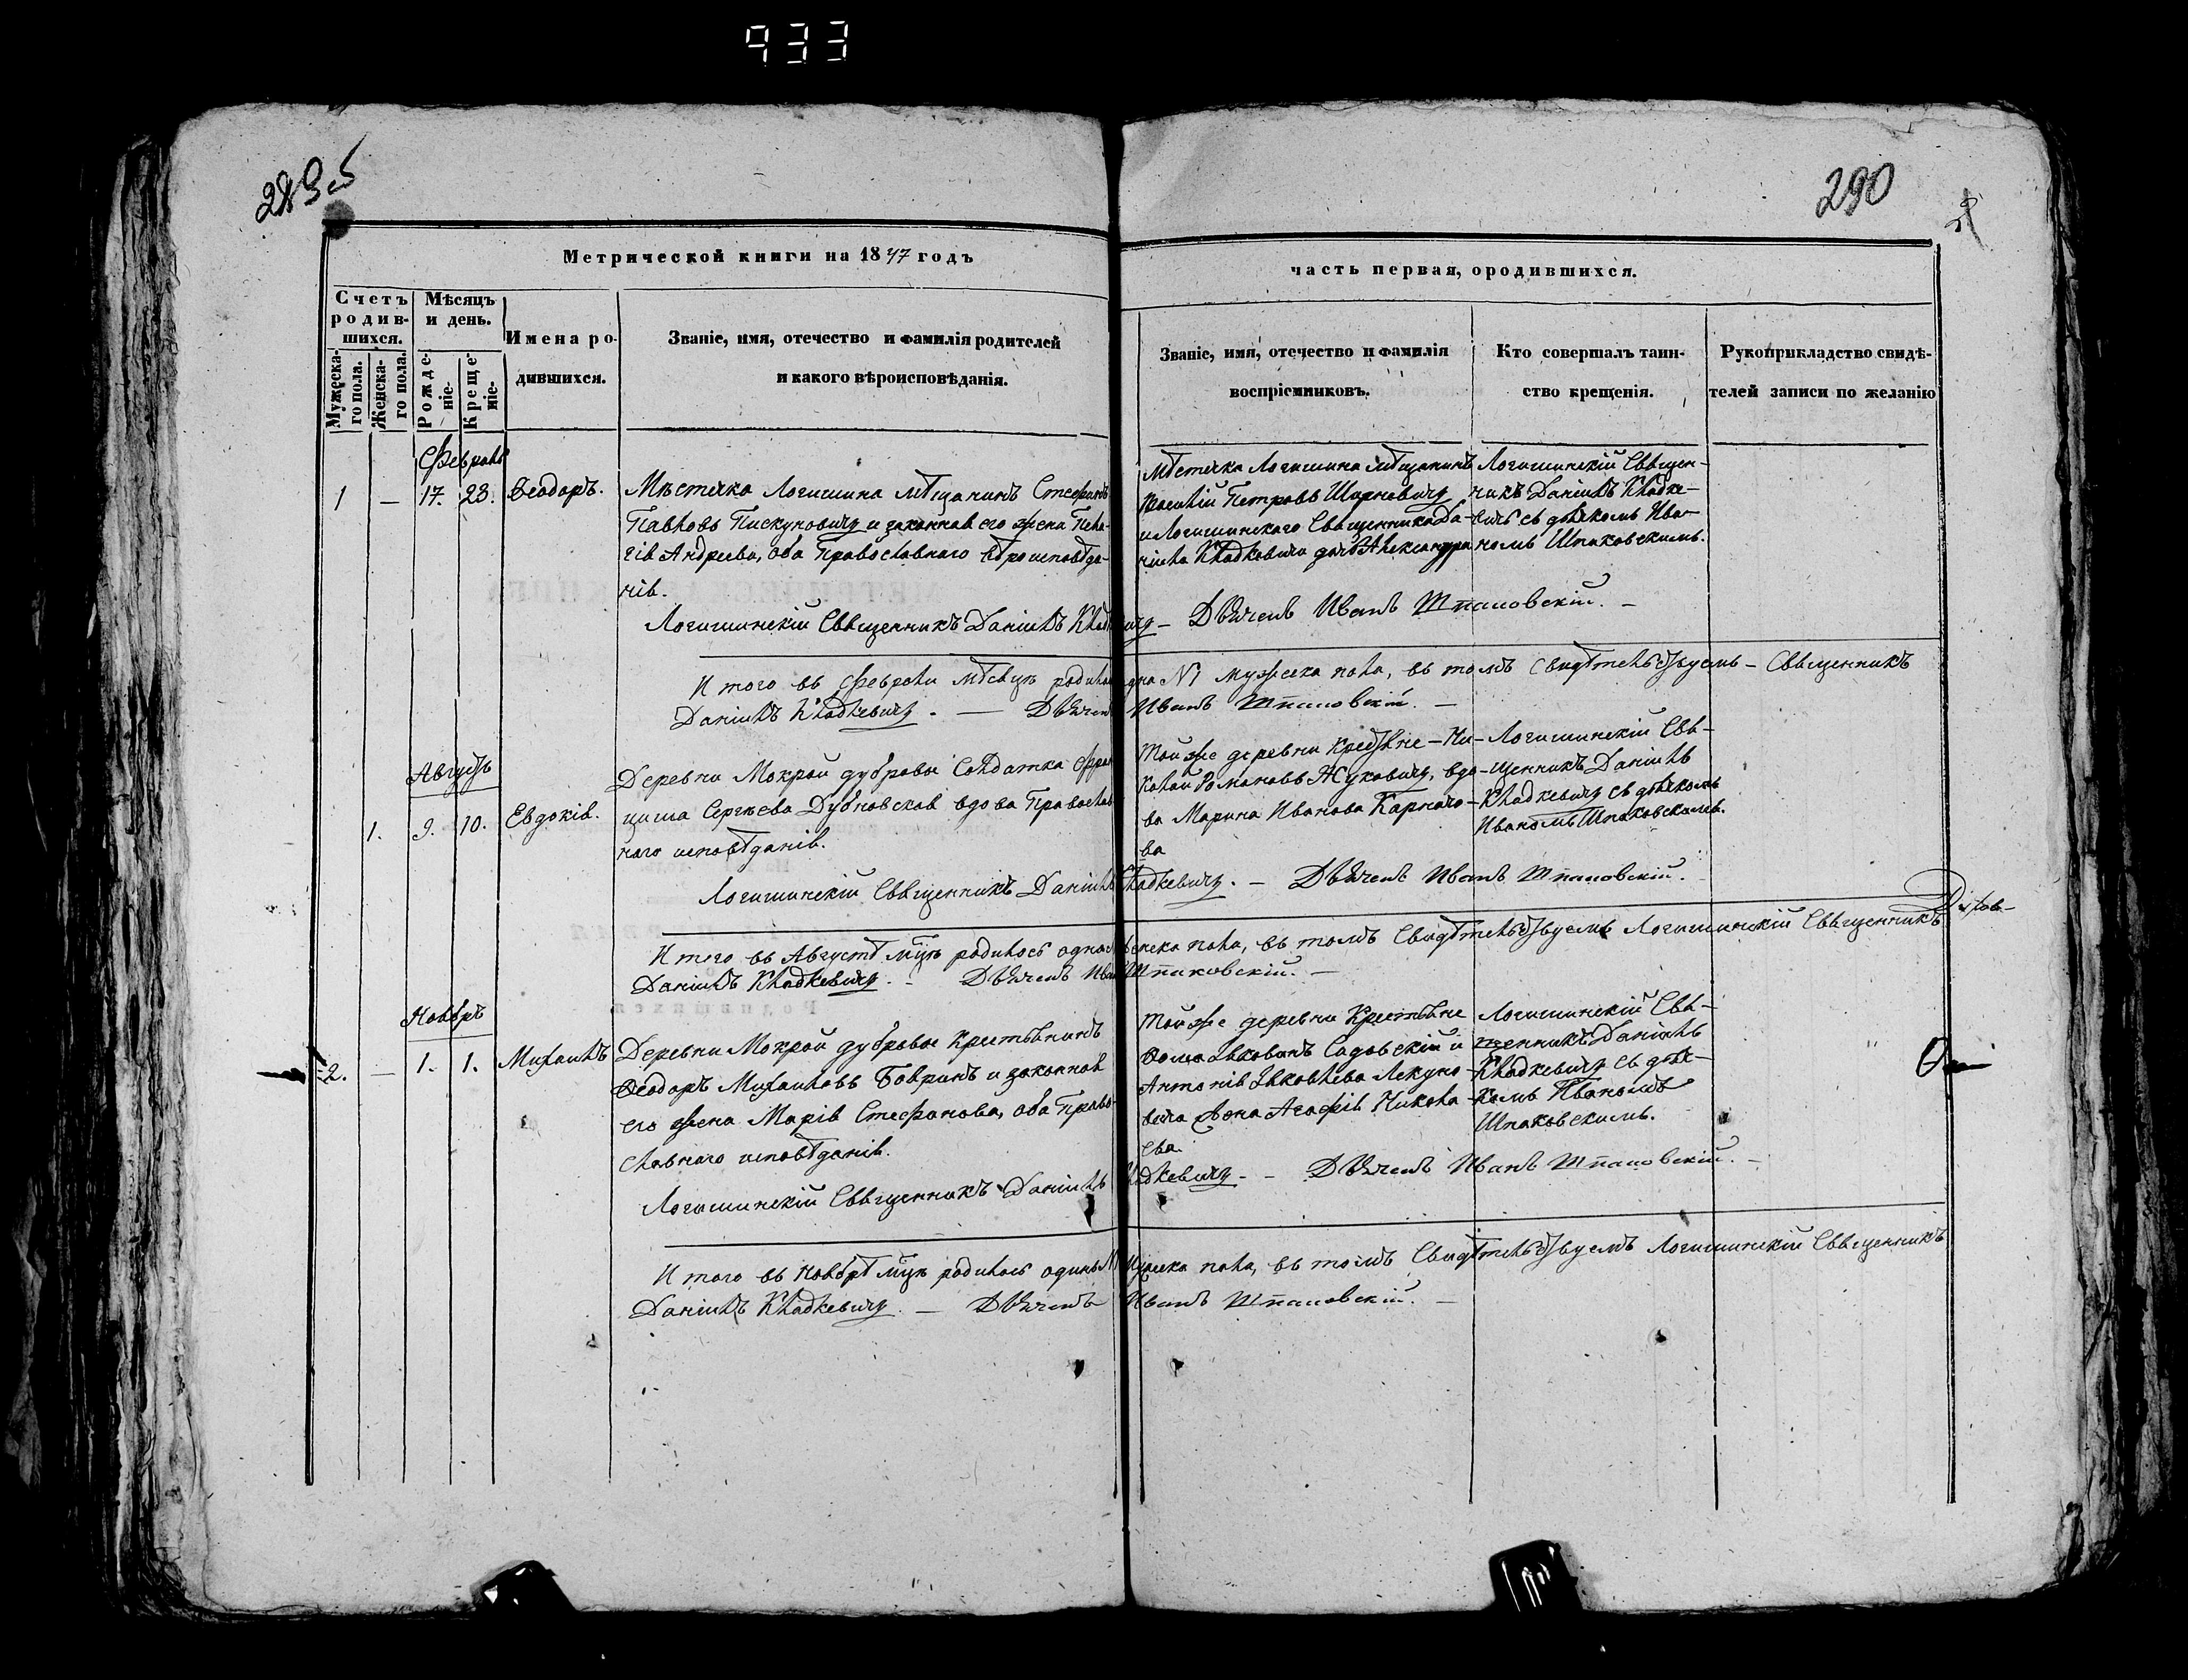 933
290
Метрической книги на 1847 годъ
часть первая, ородившихся.
Счетъ родив-шихся.
Мужеска-го пола.
Женска-го пола.
Мѣсяцъ и день.
Рожде-ніе.
Креще-ніе.
Имена ро-
дившихся.
Званіе, имя, отечество и фамилія родителей
и какого вѣроисповѣданія.
Званіе, имя, отечество и фамилія
воспріемниковъ.
Кто совершалъ таин-
ство крещенія.
Рукоприкладство свидѣ-
телей записи по желанію
Февраль
1 — 17. 23. Ѳеодоръ.
Мѣстечка Логишина мѣщанинъ Стефанъ
Павловъ Пискуновичъ и законная его жена Пела-
гія Андреева, оба Православнаго вѣроисповѣда-
нія.
Мѣстечка Логишина мѣщанинъ
Петровъ
и Логишинскаго Священника Да-
ніила Кладкевича дочь Александра
Логишинскій Священ-
никъ Даніилъ Кладке-
вичъ съ дьякомъ Ива-
номъ Шпаковскимъ.
Логишинскій Священникъ Даніилъ Кладкевичъ — Дьячекъ Иванъ Шпаковскій. —
Итого въ Февралѣ мѣсяцѣ родился одна №1 мужеска пола, въ томъ свидѣтельствуемъ — Священникъ
Даніилъ Кладкевичъ. — Дьячекъ Иванъ Шпаковскій. —
Августъ
1. 9. 10. Евдокія.
Деревни Мокрой дубровы Солдатка Фран
цишка Сергѣева Дубновская вдова Православ
наго исповѣданія.
Той же деревни Крестьяне — Ни-
колай Романовъ Жуковичъ, вдо-
ва Марина Иванова Карпачо-
ва
Логишинскій Свя-
щенникъ Даніилъ
Кладкевичъ съ дьякомъ
Иваномъ Шпаковскимъ.
Логишинскій Священникъ Даніилъ Кладкевичъ. — Дьячекъ Иванъ Шпаковскій.
Итого въ Августѣ м-цѣ родилось одна женска пола, въ томъ Свидѣтельствуемъ Логишинскій Священникъ
Даніилъ Кладкевичъ. — Дьячекъ Иванъ Шпаковскій. —
Ноябрь
2. — 1. 1. Михаилъ
Деревни Мокрой дубровы Крестьянинъ
Ѳеодоръ Михаиловъ Бовринъ и законная
его жена Марія Стефанова, оба Право-
славнаго исповѣданія.
Той же деревни Крестьяне
Ѳома Яковинъ Садовскій и
Антонія Яковлева Лекуно-
вича жена Агафія Никола-
ева.
Логишинскій Свя-
щенникъ Даніилъ
Кладкевичъ съ дья-
комъ Иваномъ
Шпаковскимъ.
Логишинскій Священникъ Даніилъ Кладкевичъ. — Дьячекъ Иванъ Шпаковскій. —
Итого въ Ноябрѣ м-цѣ родилось одинъ мужеска пола, въ томъ Свидѣтельствуемъ Логишинскій Священникъ
Даніилъ Кладкевичъ. — Дьячекъ Иванъ Шпаковскій. —